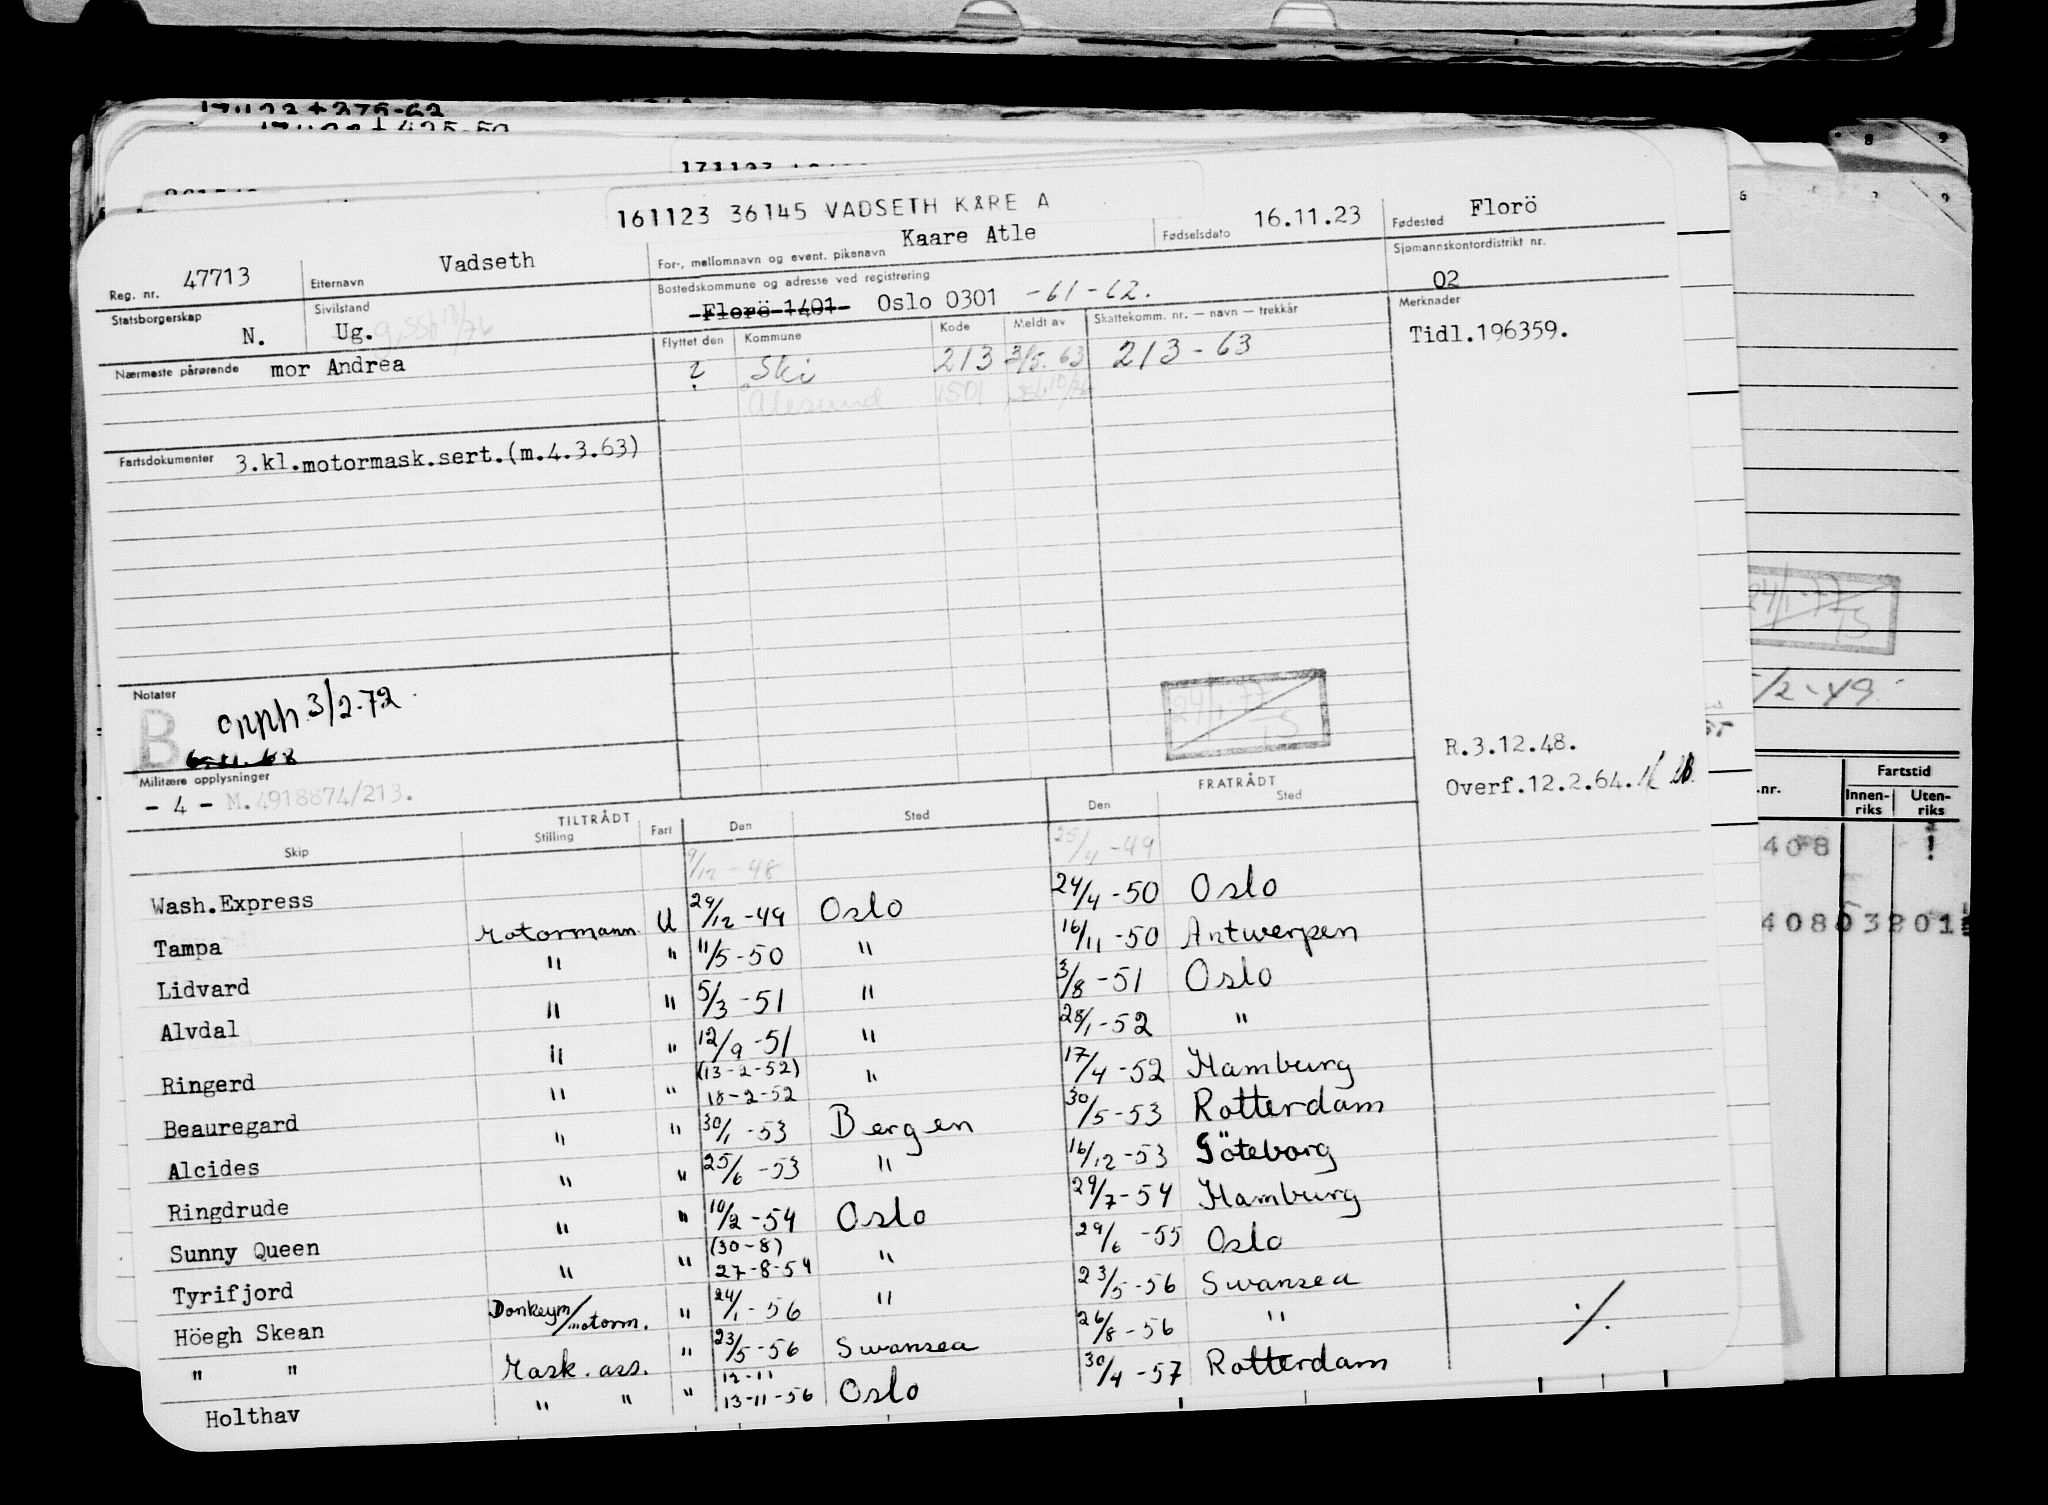 161123 36145 VADSETH KÅRE A
Reg. nr. 47713
Etternavn Vadseth
For-, mellomnavn og event. pikenavn Kaare Atle
Fødselsdato 16.11.23
Fødested Florö
Statsborgerskap N.
Sivilstand Ug.
Bostedskommune og adresse ved registrering
Florö 1401 Oslo 0301 -61-62.
Sjømannskontordistrikt nr.
02
Nærmeste pårørende mor Andrea
Flyttet den Kommune Kode Meldt av Skattekomm. nr. — navn — trekkår
? Ski 213 3/5. 63 213-63
Ålesund 1501
Merknader
Tidl.196359.
Fartsdokumenter 3.kl.motormask.sert.(m.4.3.63)
Notater
B
3/2-72
24/1-77
R.3.12.48.
Overf.12.2.64.
Militære opplysninger
- 4 - M.4918874/213.
TILTRÅDT FRATRÅDT
Skip Stilling Fart Den Sted Den Sted
9/12-48 25/4-49
Wash.Express Motormann U 29/12-49 Oslo 24/4-50 Oslo
Tampa " " 11/5-50 " 16/11-50 Antwerpen
Lidvard " " 5/3-51 " 3/8-51 Oslo
Alvdal " " 12/9-51 " 28/1-52 "
Ringerd " " (13-2-52) 18-2-52 " 17/4-52 Hamburg
Beauregard " " 30/1-53 Bergen 30/5-53 Rotterdam
Alcides " " 25/6-53 " 16/12-53 Göteborg
Ringdrude " " 10/2-54 Oslo 29/7-54 Hamburg
Sunny Queen " " (30-8) 27-8-54 " 29/6-55 Oslo
Tyrifjord Donkeym/motorm. " 24/1-56 " 23/5-56 Swansea
Höegh Skean Mask. ass. " 23/5-56 Swansea 26/8-56 "
" " " " " 12-11 13-11-56 Oslo 30/4-57 Rotterdam
Holthav
./.
24/1-77
/2-49
.nr. Fartstid
Innen-riks Uten-riks
408
408 03201